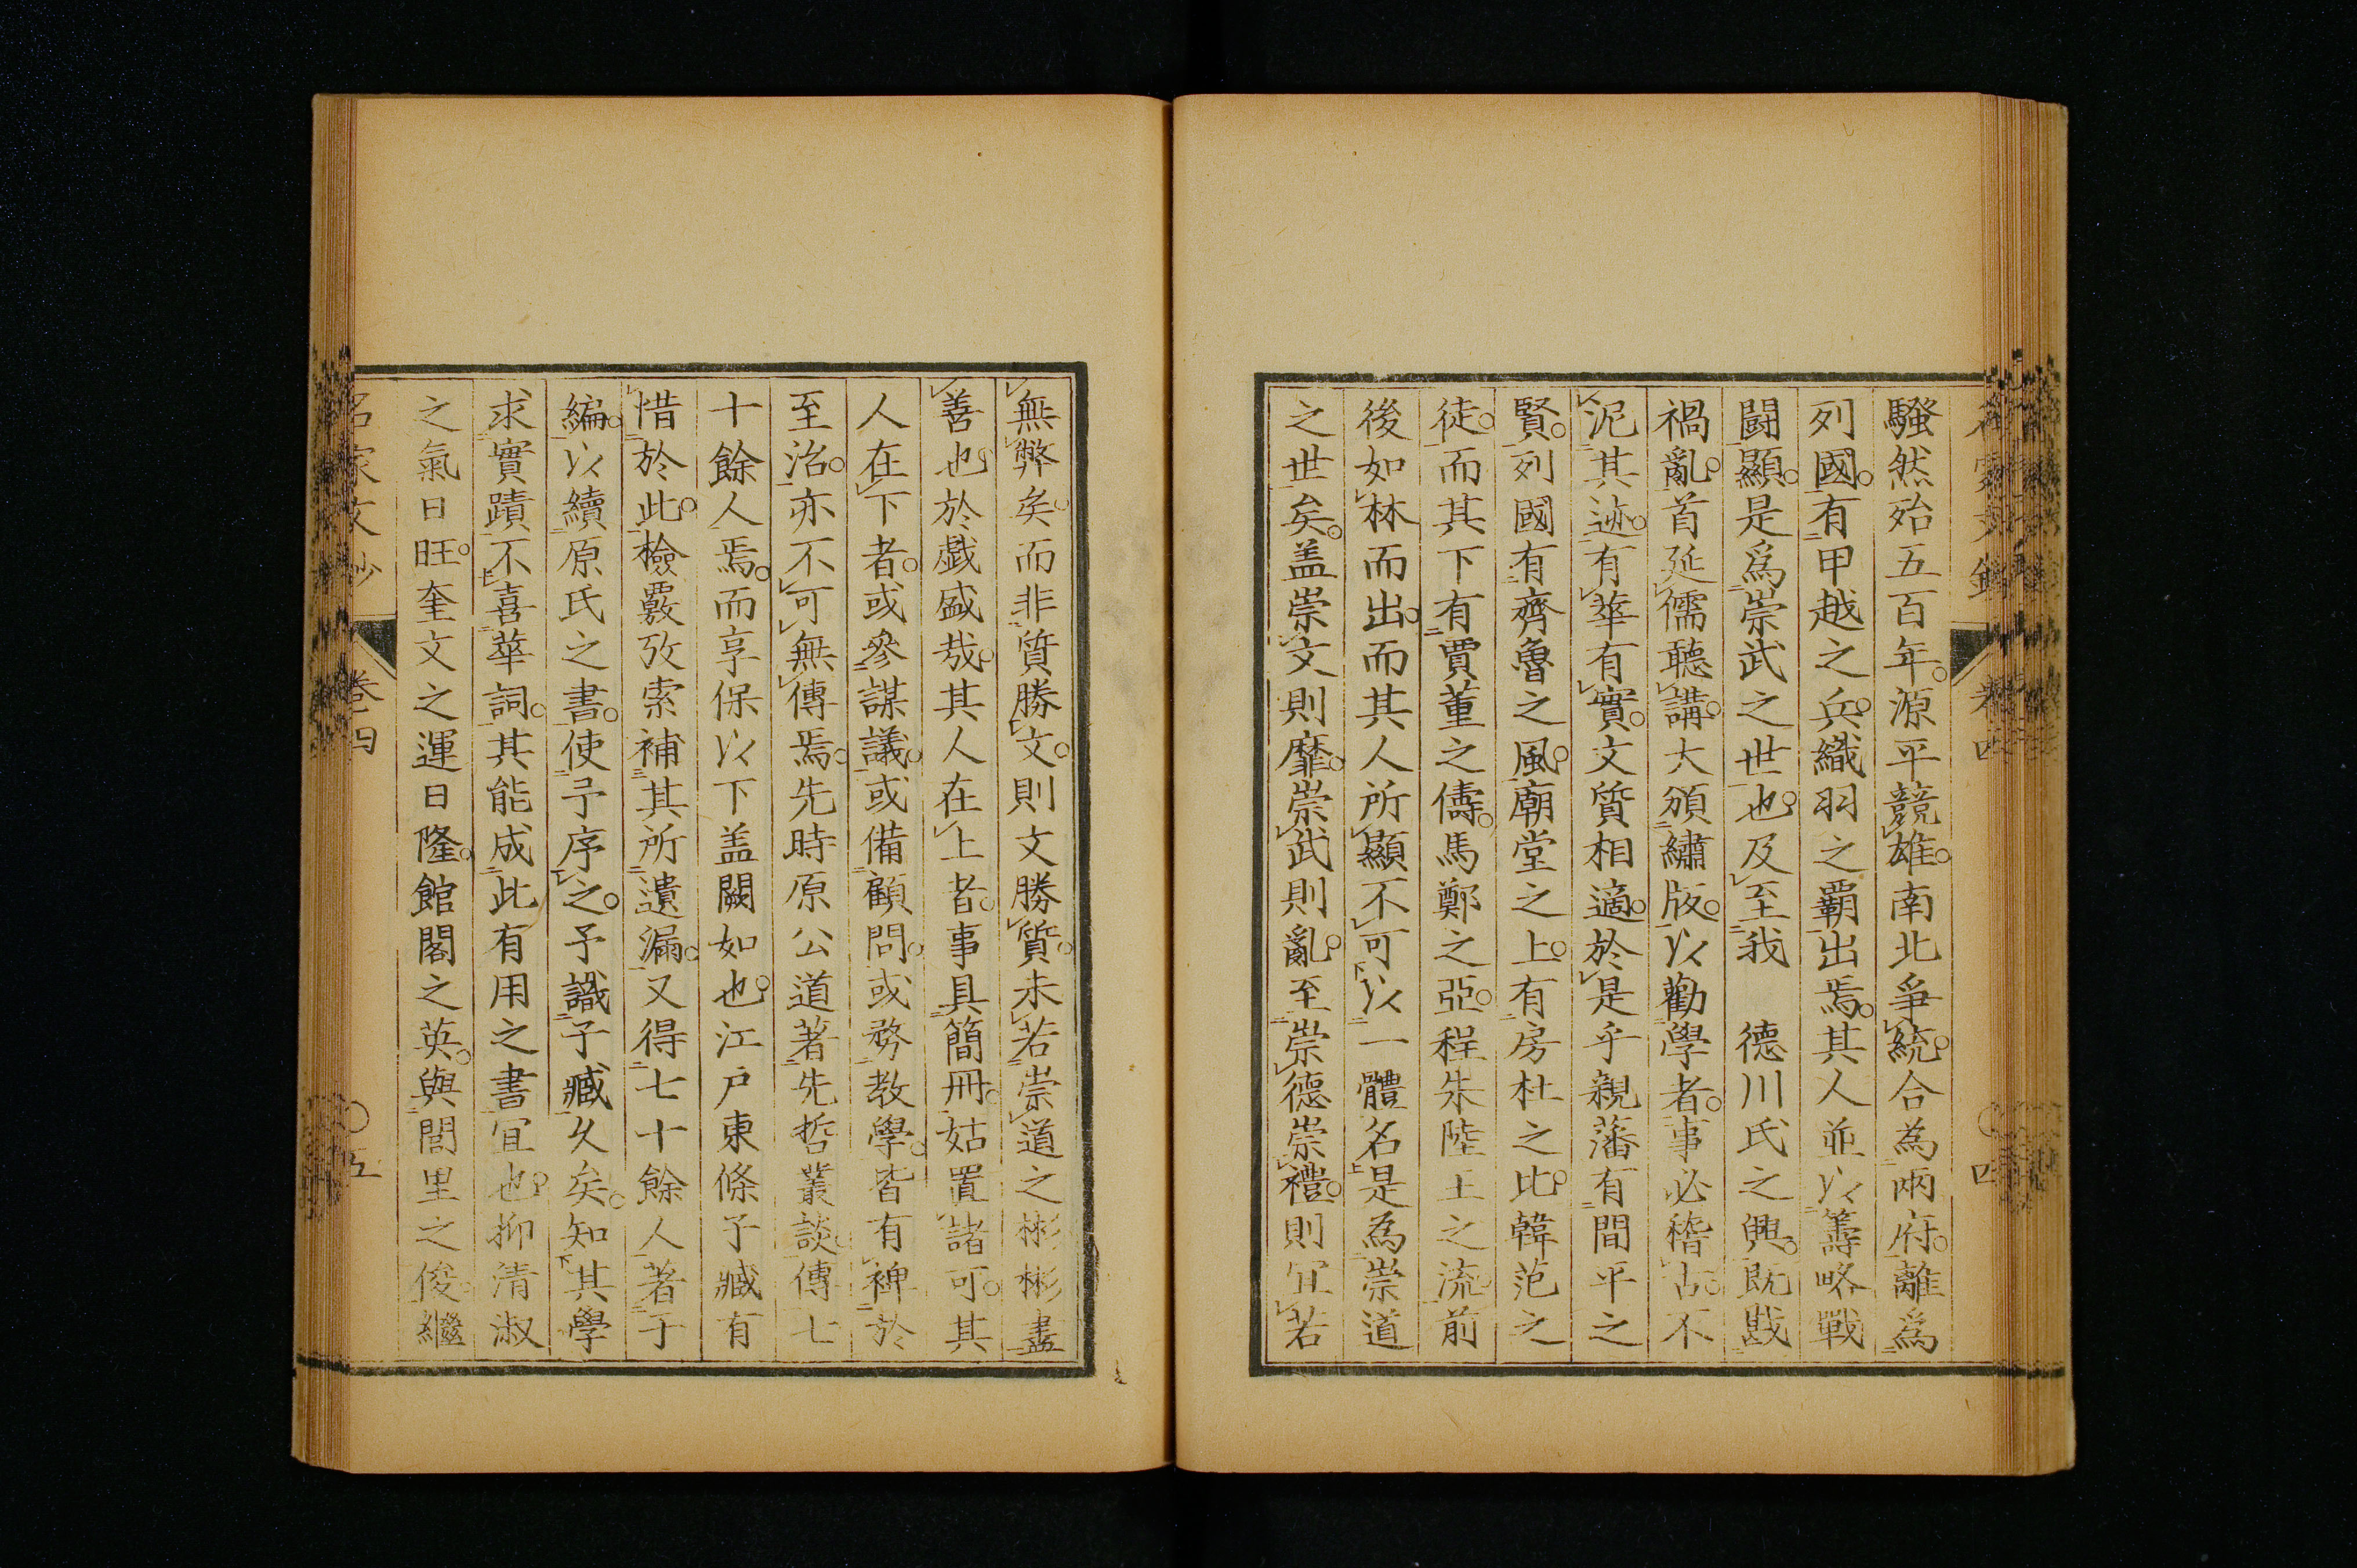 騷然殆五百年。源平競雄。南北爭統。合為兩府。離爲
列國。有甲越之兵。織羽之覇出焉。其人並以籌略戰
鬪顯。是爲崇武之世也。及至我　德川氏之興。既戡
禍亂。首延儒聽講。大頒繡版。以勸學者。事必稽古。不
泥其迹。有華有實。文質相適。於是乎親藩有間平之
賢。列國有齊魯之風。廟堂之上。有房杜之比。韓范之
徒。而其下有賈董之儔。馬鄭之亞。程朱陸王之流。前
後如林而出。而其人所顯不可以一體名。是為崇道
之世矣。盖崇文則靡。崇武則亂。至崇德崇禮。則宜若
無弊矣。而非質勝文。則文勝質。未若崇道之彬彬盡
善也。於戲盛哉。其人在上者。事具簡冊。姑置諸可。其
人在下者。或參謀議。或備顧問。或務教學。皆有裨於
至治。亦不可無傳焉。先時原公道著先哲叢談。傳七
十餘人焉。而享保以下盖闕如也。江戶東條子臧有
惜於此。檢覈攷索補其所遺漏。又得七十餘人。著于
編。以續原氏之書。使予序之。予識子臧久矣。知其學
求實蹟。不喜華詞。其能成此有用之書宜也。抑清淑
之氣日旺。奎文之運日隆。館閣之英。與閭里之俊。繼
名家文抄　卷四　〇五